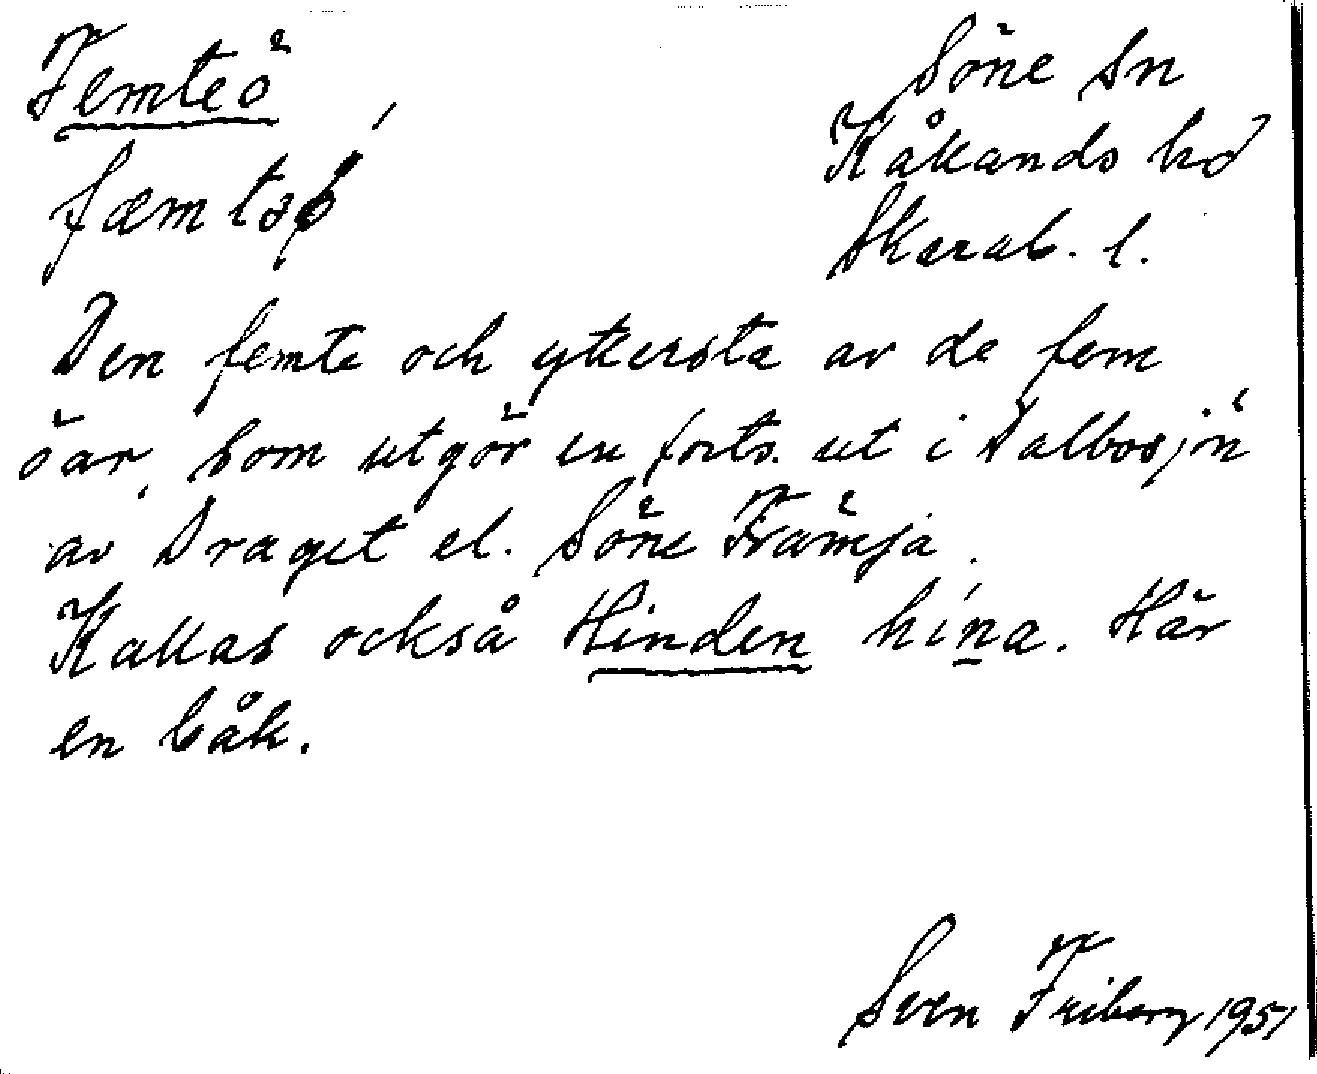 Femteö
Söne Sn
Kåkands hd
fæmtəø´
Skarab. l.
Den femte och yttersta av de fem
öar, som utgör en forts. ut i Dalbosjön
av Draget el. Söne Främja.
Kallas också Hinden hína. Här
en båk.
Sven Friberg 1951